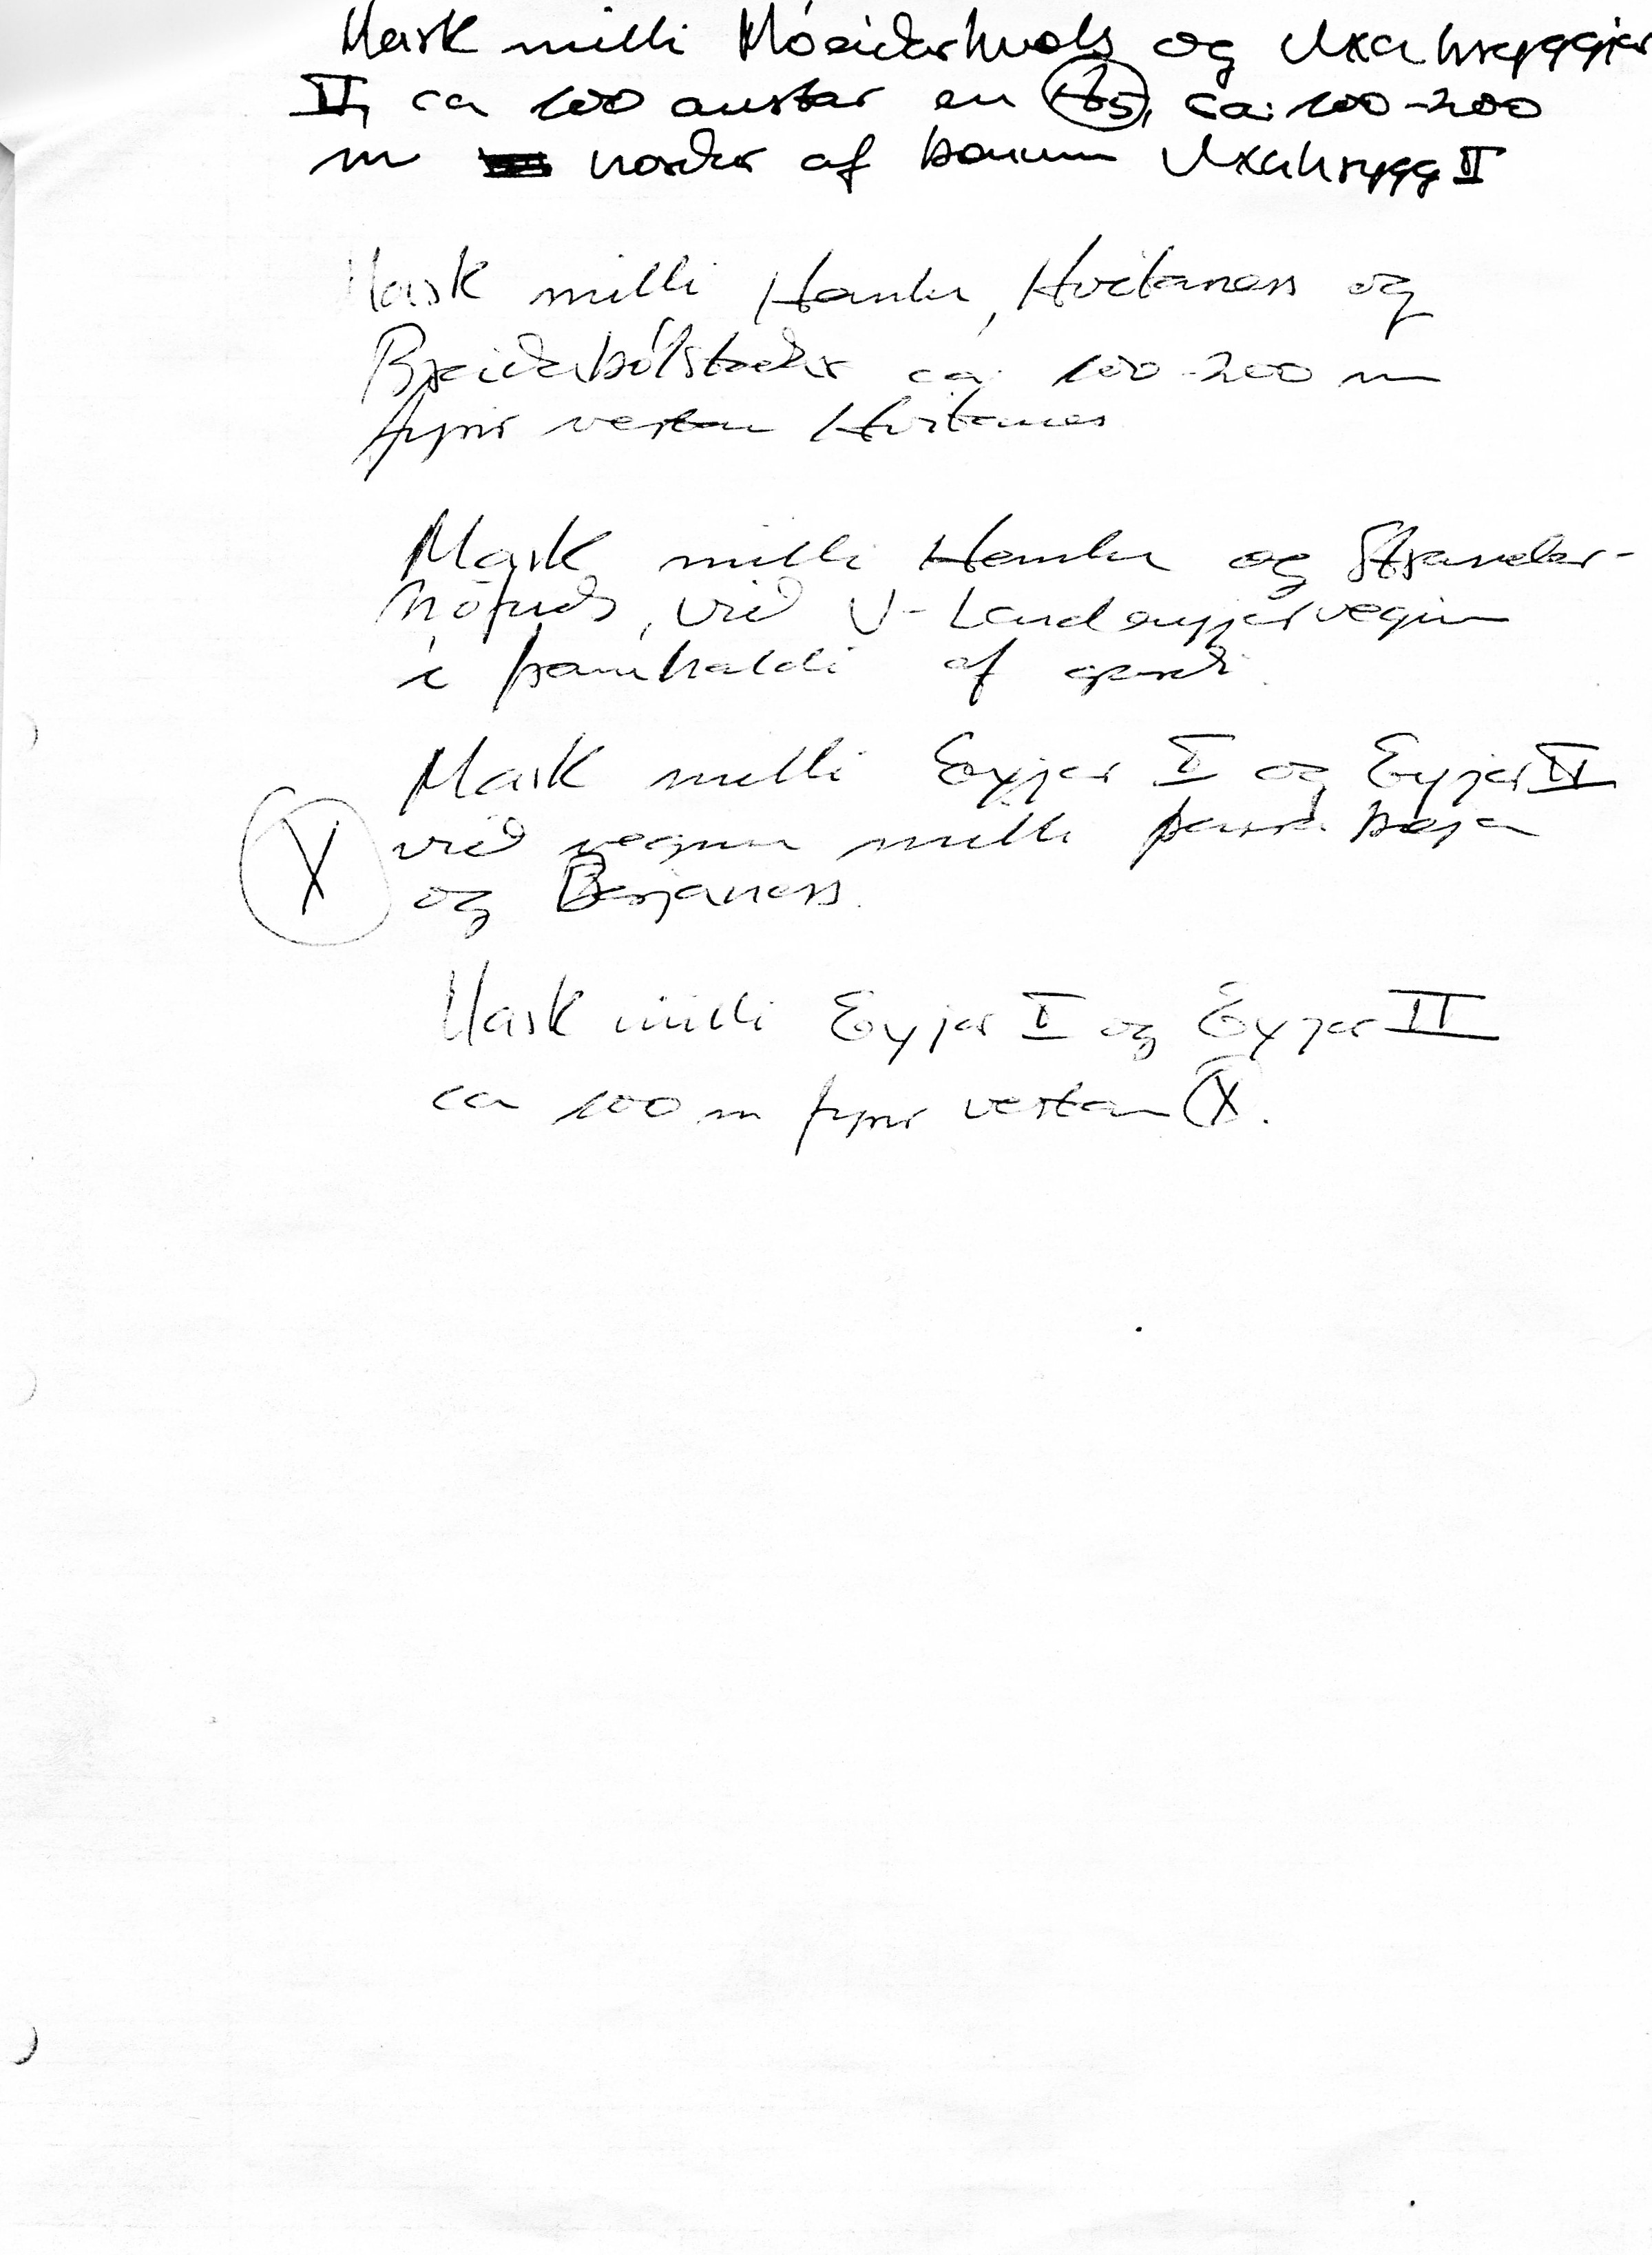 Mark milli Móeiðarhvols og Uxahryggjar
II, ca 100 austar en H5, ca: 100-200
m norður af bænum Uxahrygg II
Mark milli Hemlu, Hvítaness og
Breiðabólstaðar ca: 100-200 m
fyrir vestan Hvítanes
Mark milli Hemlu og Strandar-
höfuðs, við V-Landeyjarveginn
í framhaldi af garði.
Mark milli Eyjar I og Eyjar II
X við veginn milli þeirra bæja
og Berjaness.
Mark milli Eyjar I og Eyjar II
ca 100 m fyrir vestan X.